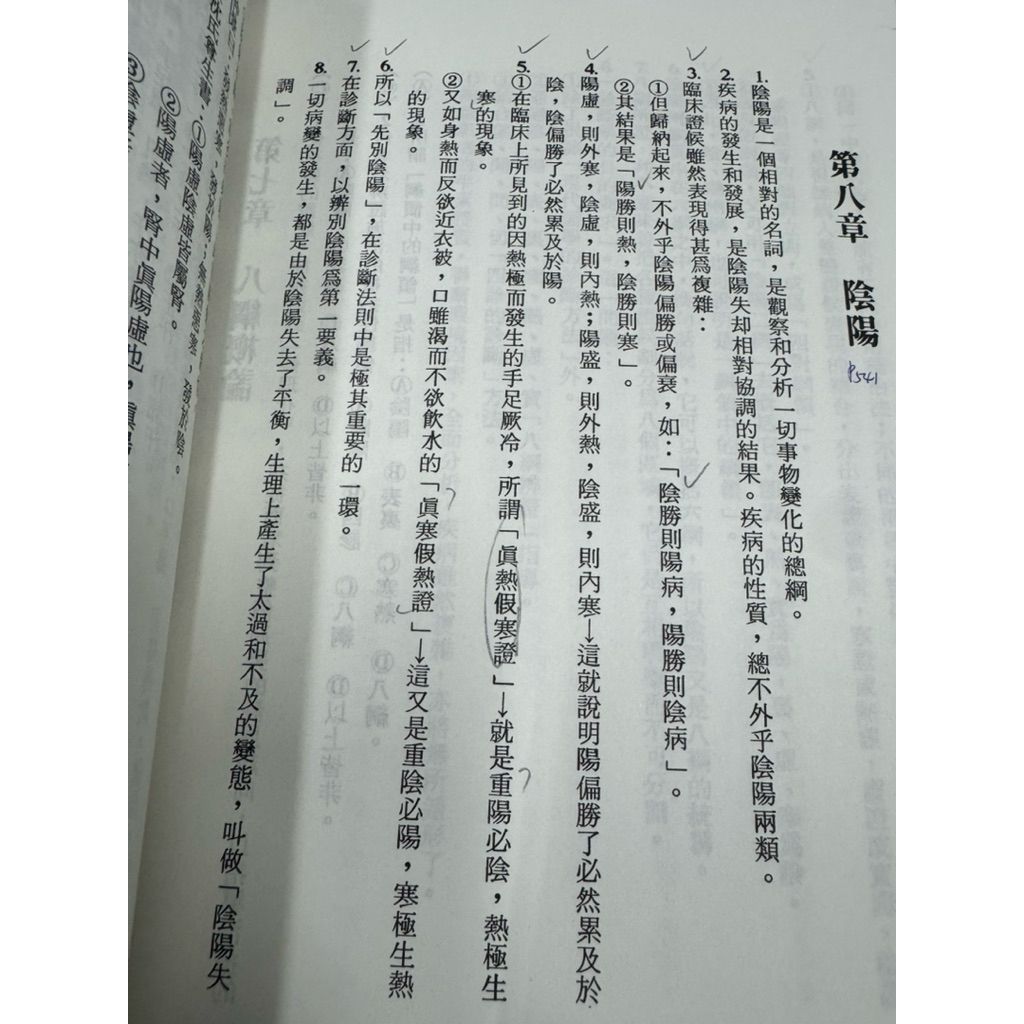 第八章　陰陽
P541
1.陰陽是一個相對的名詞，是觀察和分析一切事物變化的總綱。
2.疾病的發生和發展，是陰陽失却相對協調的結果。疾病的性質，總不外乎陰陽兩類。
3.臨床證候雖然表現得甚爲複雜：
①但歸納起來，不外乎陰陽偏勝或偏衰，如：「陰勝則陽病，陽勝則陰病」。
②其結果是「陽勝則熱，陰勝則寒」。
4.陽虛，則外寒，陰虛，則內熱；陽盛，則外熱，陰盛，則內寒→這就說明陽偏勝了必然累及於
陰，陰偏勝了必然累及於陽。
5.①在臨床上所見到的因熱極而發生的手足厥冷，所謂「眞熱假寒證」→就是重陽必陰，熱極生
寒的現象。
②又如身熱而反欲近衣被，口雖渴而不欲飲水的「眞寒假熱證」→這又是重陰必陽，寒極生熱
的現象。
6.所以「先別陰陽」，在診斷法則中是極其重要的一環。
7.在診斷方面，以辨別陰陽爲第一要義。
8.一切病變的發生，都是由於陰陽失去了平衡，生理上產生了太過和不及的變態，叫做「陰陽失
調」。
①陽虛陰虛皆屬腎。
②陽虛者，腎中眞陽虛也，